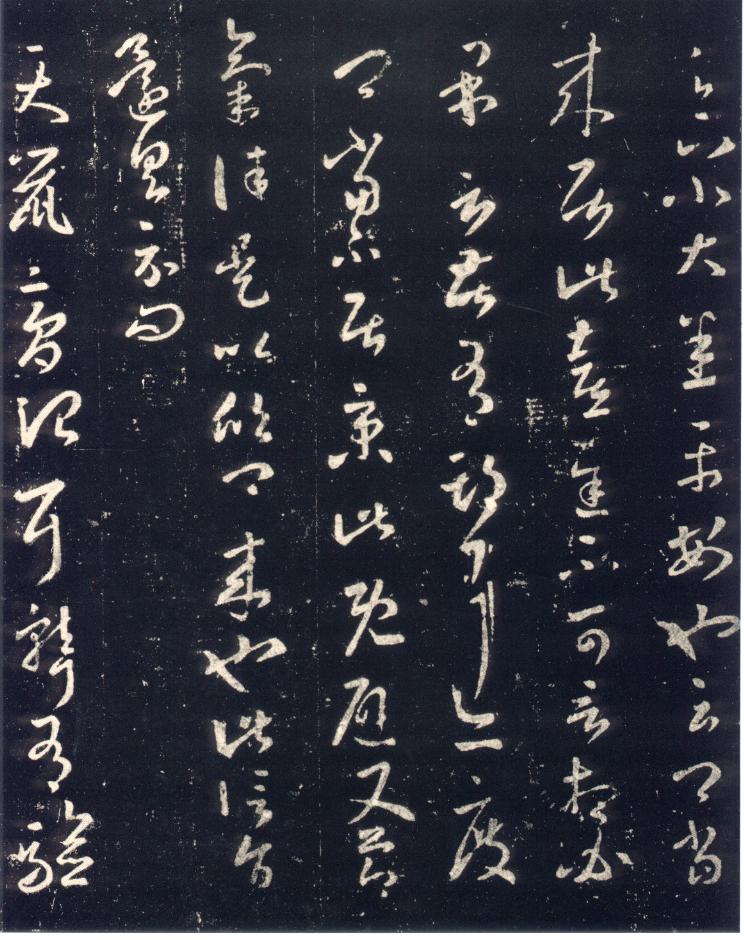 足下小大悉平安也云卿當
來居此喜遲不可言想必
果言告有期耳亦度
卿當不居京此既避又節
氣佳是以欣卿來也此信旨
還具示問
天鼠膏治耳聾有驗